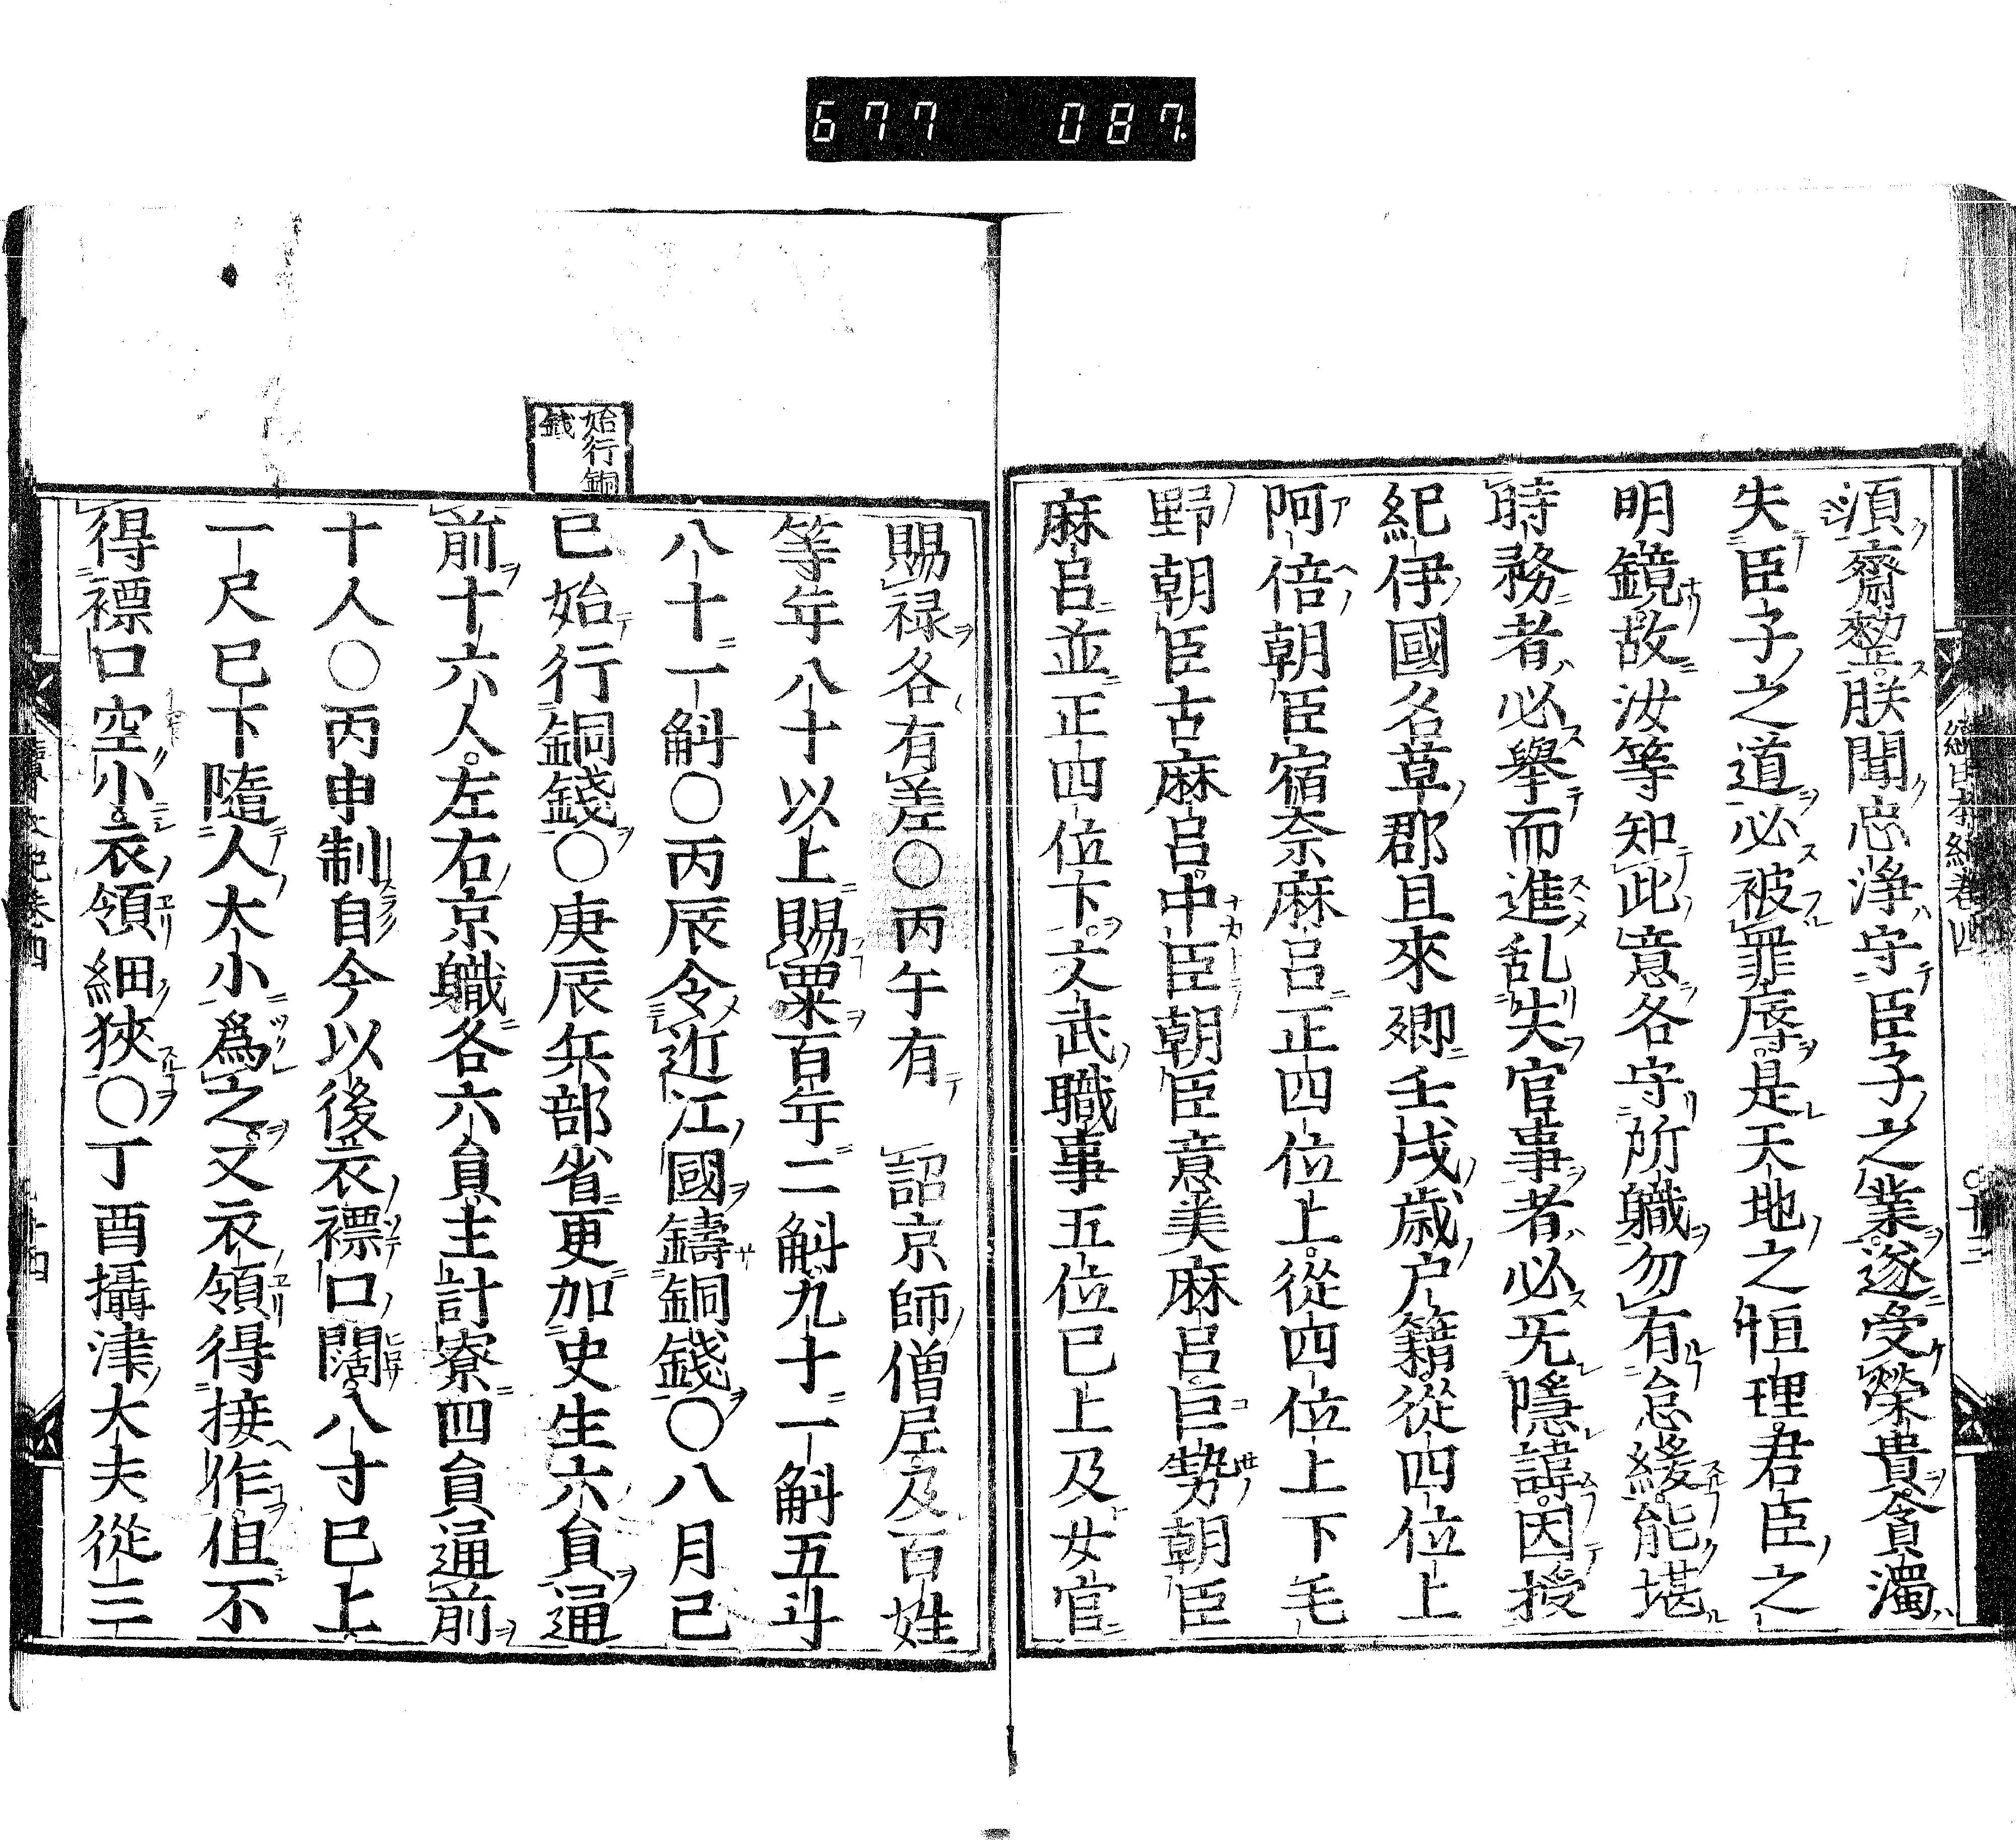 677 087
須齋整朕聞忠浄守臣子之業遂受榮貴貪濁
失臣子之道必被罪辱是天地之恒理君臣之
明鏡故汝等知此意各守所職勿有怠緩能堪
時務者必舉而進乱失官事者必旡隱諱因授
紀伊國名草郡且來郷壬戌歳戸籍從四位上
阿倍朝臣宿奈麻呂正四位上從四位上下毛
野朝臣古麻呂中臣朝臣意美麻呂巨勢朝臣
麻呂並正四位下文武職事五位已上及女官
始行銅
錢
賜禄各有差○丙午有 詔京師僧尼及百姓
等年八十以上賜粟百年二斛九十一斛五斗
八十一斛○丙辰令近江國鑄銅錢○八月己
巳始行銅錢○庚辰兵部省更加史生六員通
前十六人左右京職各六員主計寮四員通前
十人○丙申制自今以後衣褾口闊八寸已上
一尺已下隨人大小爲之又衣領得接作但不
得褾口空小衣領細狹○丁酉攝津大夫從三